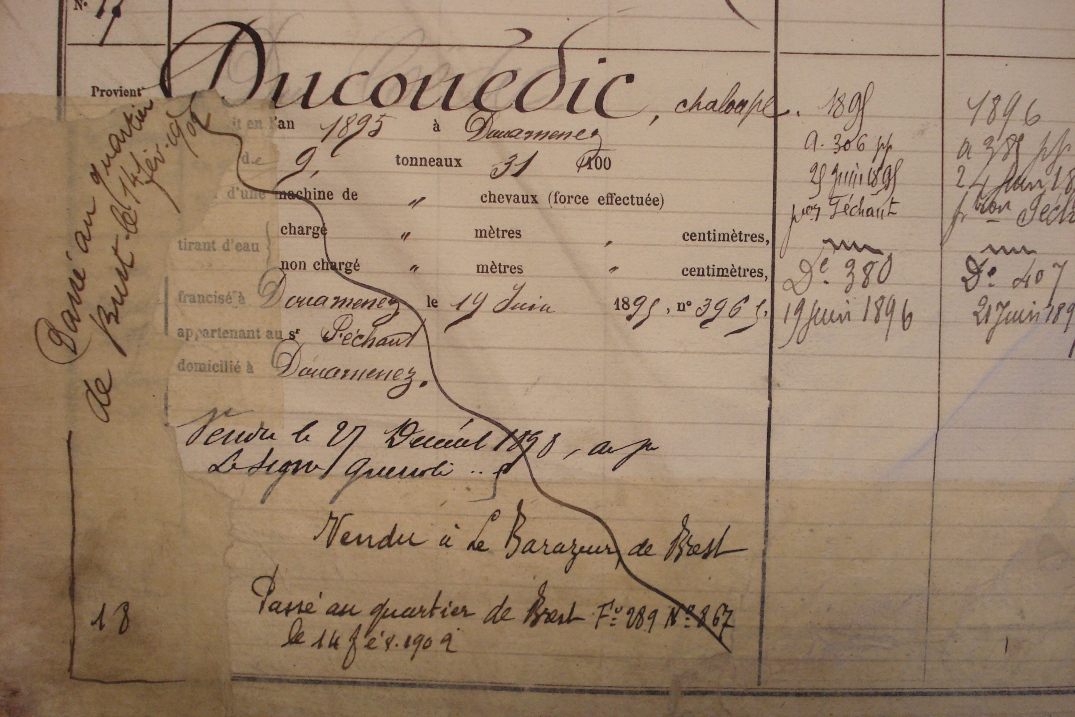 N.° 17
Ducouëdic, chaloupe.
Provient
it en l'an 1895 à Douarnenez
de 9, tonneaux 31 /100
d'une machine de " chevaux (force effectuée)
tirant d'eau
chargé " mètres " centimètres,
non chargé " mètres " centimètres,
francisé à Douarnenez le 19 Juin 1895, n° 3965.
appartenant au sr Péchaut
domicilié à Douarnenez.
Vendu le 27 1898,
Vendu à Le Barazeur, de Brest
Passé au quartier de Brest F° 289 N° 867
le 14 fév. 1902
18
Passé au quartier
de Brest le 14
fév. 1902
1895
a. 306 pp
25 juin 1895
par Péchaut
D° 380
19 juin 1896
1896
a 385 pp
24 juin 18
D° 407
21 juin 189